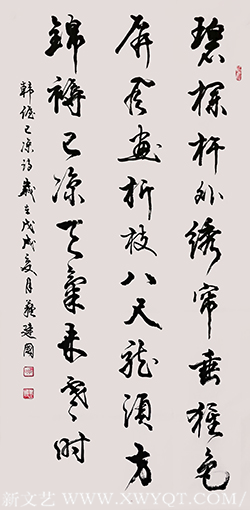 碧栏杆外绣帘垂猩色
屏风画折枝八天龙须方
錦褥已凉天氣未寒时
韩偓已凉诗歲在戊戌夏月苏建國
新文艺/WWW.XWYQT.COM